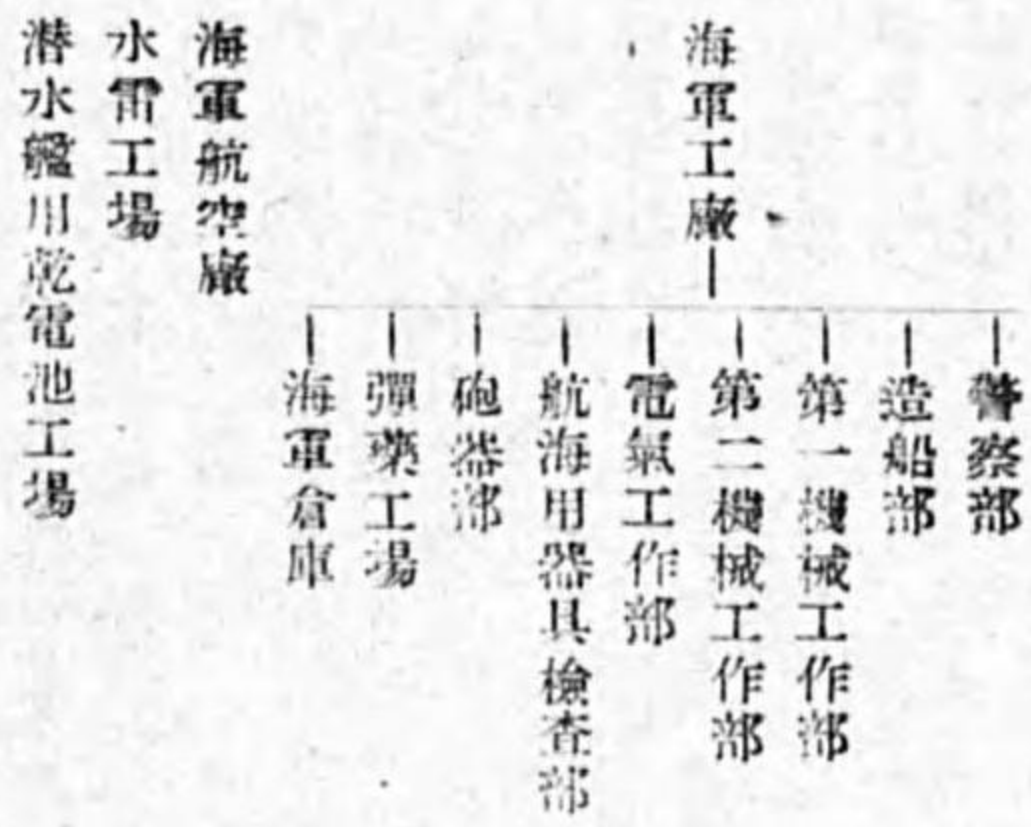 海軍工廠
警察部
造船部
第一機械工作部
第二機械工作部
電氣工作部
航海用器具檢査部
砲器部
彈藥工場
海軍倉庫
海軍航空廠
水雷工場
潜水艦用乾電池工場